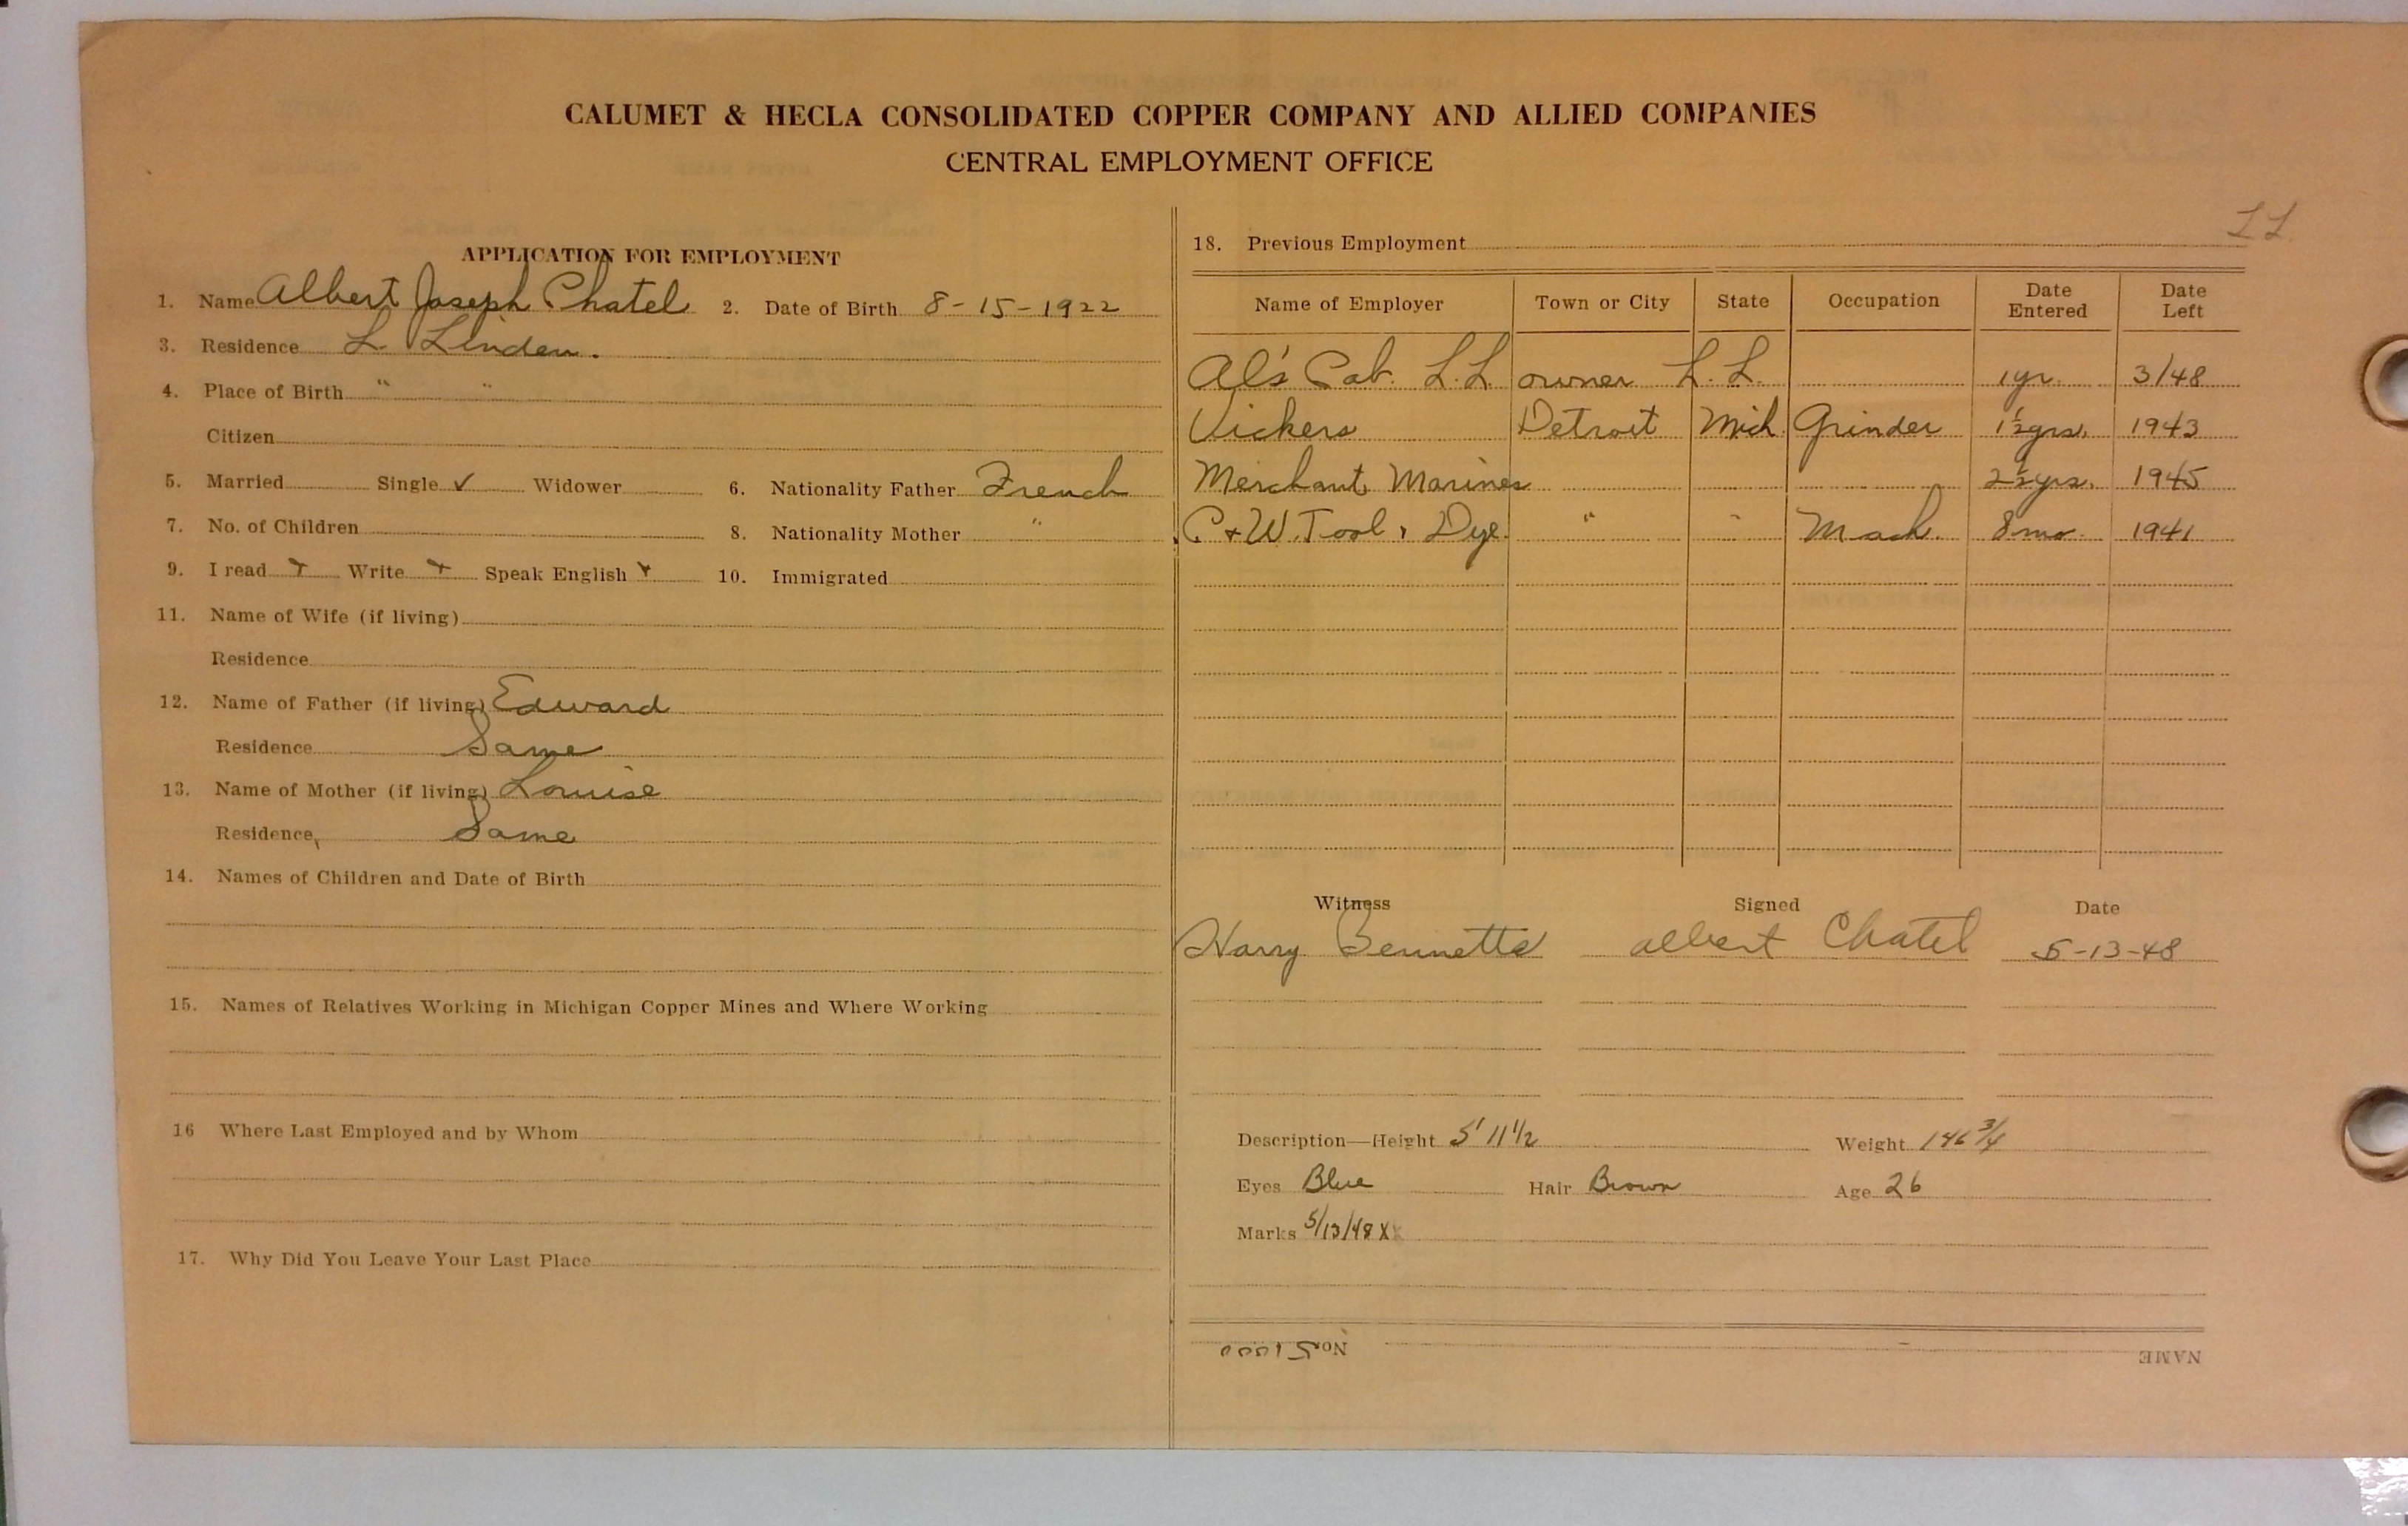 CALUMET & HECLA CONSOLIDATED COPPER COMPANY AND ALLIED COMPANIES
CENTRAL EMPLOYMENT OFFICE
APPLICATION FOR EMPLOYMENT
1. Name Albert Joseph Chatel 2. Date of Birth 8-15-1922
3. Residence L. Linden.
4. Place of Birth " "
Citizen
5. Married Single ✓ Widower 6. Nationality Father French
7. No. of Children 8. Nationality Mother "
9. I read x Write x Speak English x 10. Immigrated
11. Name of Wife (if living)
Residence
12. Name of Father (if living) Edward
Residence Same
13. Name of Mother (if living) Louise
Residence Same
14. Names of Children and Date of Birth
15. Names of Relatives Working in Michigan Copper Mines and Where Working
16 Where Last Employed and by Whom
17. Why Did You Leave Your Last Place
LL
18. Previous Employment
Name of Employer Town or City State Occupation Date Entered Date Left
Al's Cab. L.L. owner L.L. 1 yr. 3/48
Vickers Detroit Mich Grinder 1½ yrs. 1943
Merchant Marines 2½ yrs. 1945
C + W. Tool + Dye. " " Mach. 8 mo. 1941
Witness Signed Date
Harry Bennetts Albert Chatel 5-13-48
Description—Height 5' 11 1/2 Weight 146 3/4
Eyes Blue Hair Brown Age 26
Marks 5/13/48 X
No.
NAME